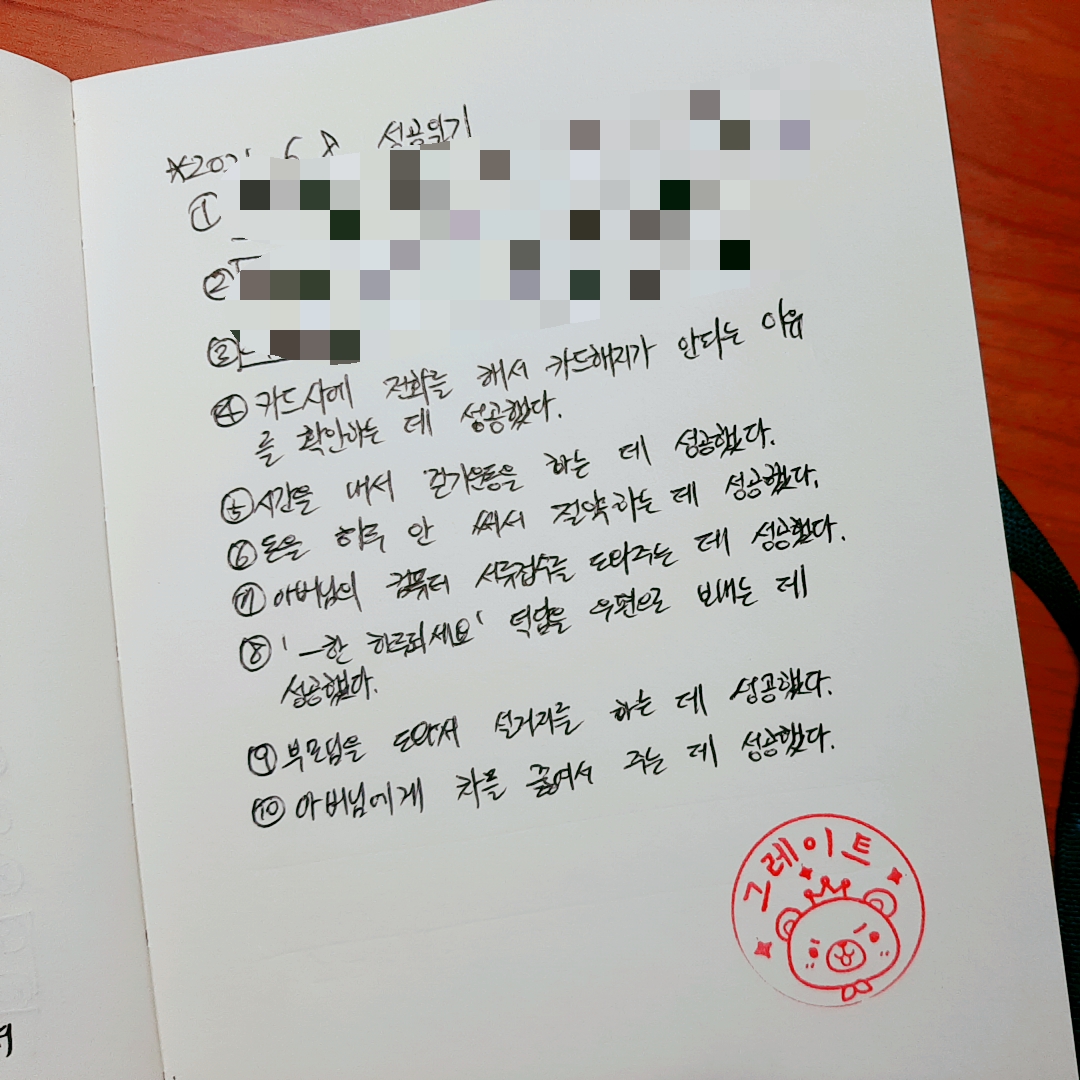 성공일기
①
②
③
④ 카드사에 전화를 해서 카드해지가 안되는 이유
를 확인하는 데 성공했다.
⑤ 시간을 내서 걷기운동을 하는 데 성공했다.
⑥ 돈을 하루 안 써서 절약하는 데 성공했다.
⑦ 아버님의 컴퓨터 서류접수를 도와주는 데 성공했다.
⑧ '—한 하루되세요' 덕담을 우편으로 보내는 데
성공했다.
⑨ 부모님을 도와서 설거지를 하는 데 성공했다.
⑩ 아버님에게 차를 끓여서 주는 데 성공했다.
그레이트